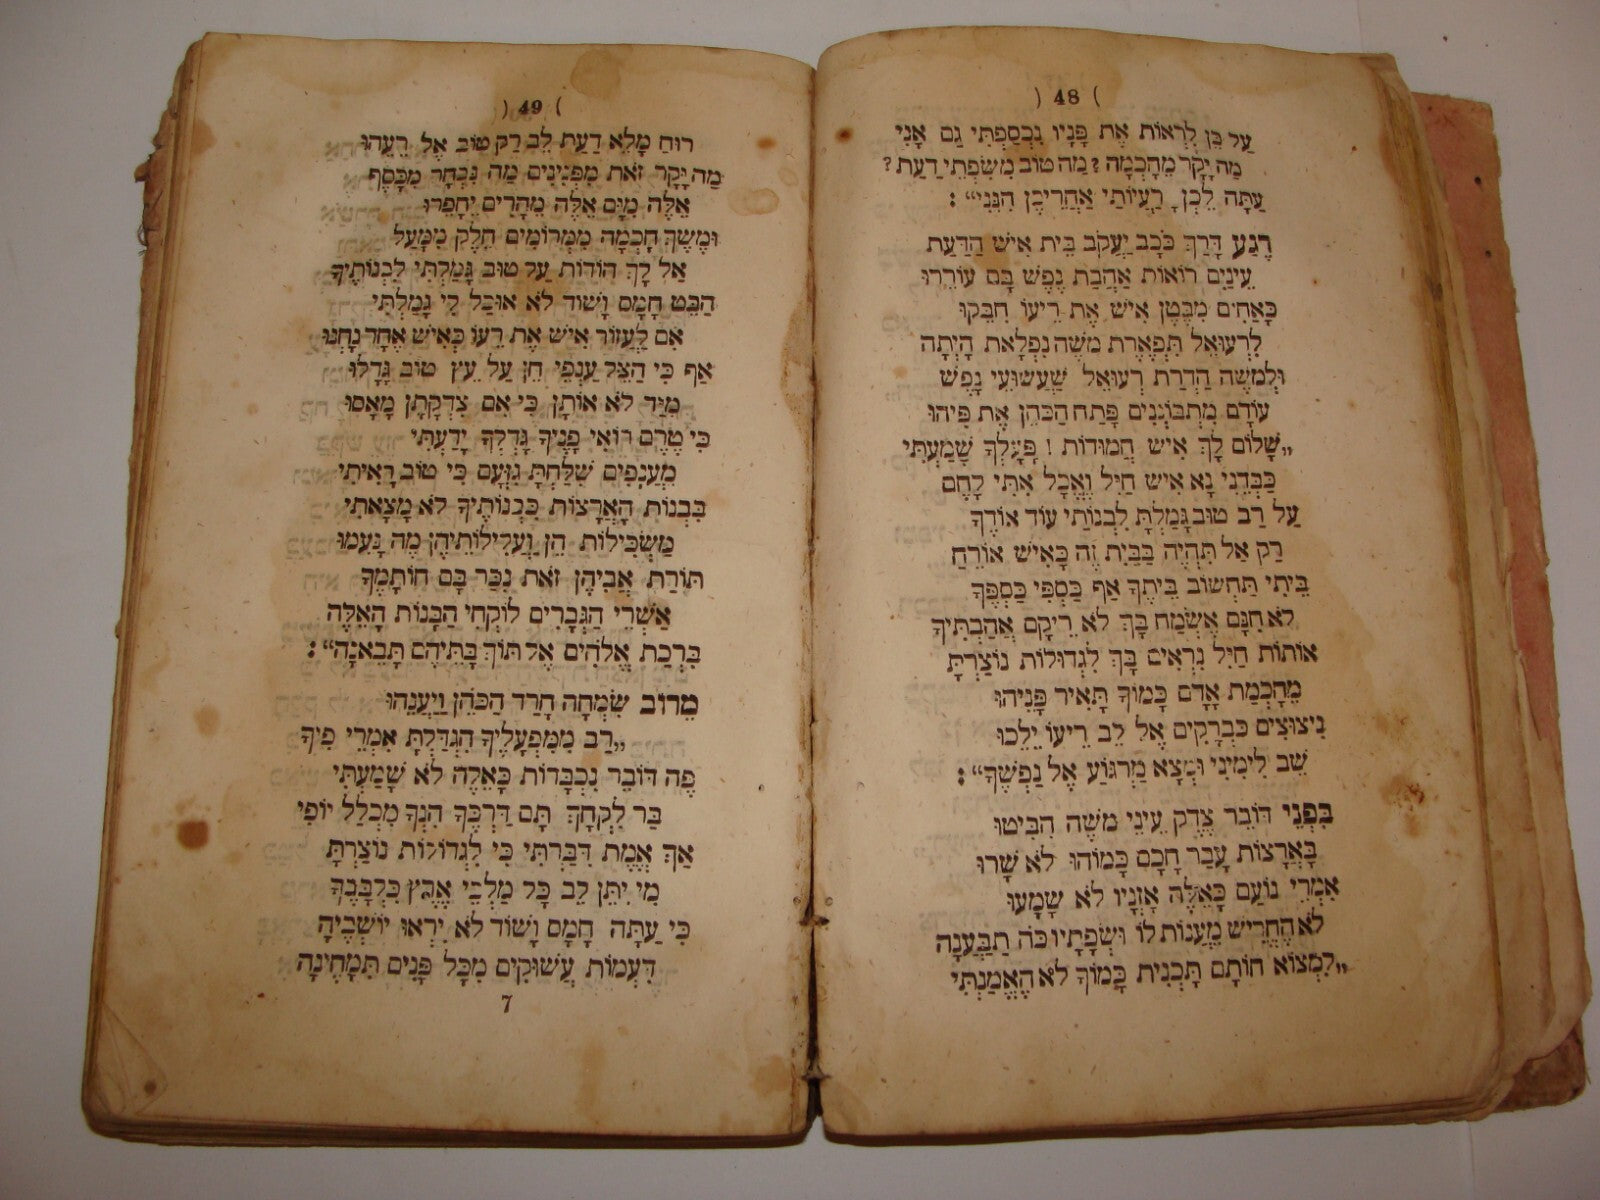 ) 48 (
עַל כֵּן לִרְאוֹת אֶת פָּנָיו נִכְסַפְתִּי גַם אָנִי
מַה יָּקָר מֵחָכְמָה? מַה טוֹב מִשִּׂפְתֵי דָעַת?
עַתָּה לֵכְןָ רַעְיוֹתַי אַחֲרֵיכֶן הִנֵּנִי“:
רֶגַע דָּרַךְ כֹּכַב יַעֲקֹב בֵּית אִישׁ הַדַּעַת
עֵינַיִם רוֹאוֹת אַהֲבַת נֶפֶשׁ בָּם עוֹרֵרוּ
כָּאַחִים מִבֶּטֶן אִישׁ אֶת רֵיעוֹ חִבֵּקוּ
לִרְעוּאֵל תִּפְאֶרֶת מֹשֶׁה נִפְלָאת הָיְתָה
וּלְמֹשֶׁה הַדְרַת רְעוּאֵל שַׁעֲשׁוּעֵי נָפֶשׁ
עוֹדָם מִתְבּוֹנְנִים פָּתַח הַכֹּהֵן אֶת פִּיהוּ
„שָׁלוֹם לָךְ אִישׁ חֲמוּדוֹת! פָּעֳלְךָ שָׁמַעְתִּי
כַּבְּדֵנִי נָא אִישׁ חַיִל וֶאֱכָל אִתִּי לָחֶם
עַל רַב טוּב גָּמַלְתָּ לִבְנוֹתַי עוֹד אוֹדֶךָּ
רַק אַל תִּהְיֶה בַּבַּיִת זֶה כָּאִישׁ אוֹרֵחַ
בֵּיתִי תַּחְשׁוֹב בֵּיתֶךָ אַף כַּסְפִּי כַּסְפֶּךָ
לֹא חִנָּם אֶשְׂמַח בָּךְ לֹא רֵיקָם אֲהַבְתִּיךָ
אוֹתוֹת חַיִל נִרְאִים בָּךְ לִגְדוּלוֹת נוֹצַרְתָּ
מֵחָכְמַת אָדָם כָּמוֹךָ תָּאִיר פָּנֵיהוּ
נִיצוֹצִים כִּבְרָקִים אֶל לֵב רֵיעוֹ יֵלֵכוּ
שֵׁב לִימִינִי וּמְצָא מַרְגּוֹעַ אֶל נַפְשֶׁךָ“:
בִּפְנֵי דּוֹבֵר צֶדֶק עֵינֵי מֹשֶׁה הִבִּיטוּ
בָּאֲרָצוֹת עָבַר חָכָם כָּמוֹהוּ לֹא שָׁרוּ
אִמְרֵי נוֹעַם כָּאֵלֶּה אָזְנָיו לֹא שָׁמָעוּ
לֹא הֶחֱרִישׁ מֵעֲנוֹת לוֹ וּשְׂפָתָיו כֹּה תַבַּעְנָה
„לִמְצוֹא חוֹתַם תָּכְנִית כָּמוֹךָ לֹא הֶאֱמַנְתִּי
) 49 (
רוּחַ מָלֵא דַעַת לֵב רַק טוֹב אֶל רֵעֵהוּ
מַה יָּקָר זֹאת מִפְּנִינִים מַה נִּבְחָר מִכָּסֶף
אֵלֶּה מִיָּם אֵלֶּה מֵהָרִים יֵחָפֵרוּ
וּמֶשֶׁךְ חָכְמָה מִמְּרוֹמִים חֵלֶק מִמָּעַל
אַל לָךְ הוֹדוֹת עַל טוּב גָּמַלְתִּי לִבְנוֹתֶיךָ
הַבֵּט חָמָס וָשׁוֹד לֹא אוּכַל כִּי גָמַלְתִּי
אִם לַעֲזוֹר אִישׁ אֶת רֵעוֹ כְּאִישׁ אֶחָד נָחְנוּ
אַף כִּי הַצֵּל עַנְפֵי חֵן עַל עֵץ טוֹב גָּדֵלוּ
מִיַּד לֹא אוֹתָן כִּי אִם צִדְקָתָן מָאָסוּ
כִּי טֶרֶם רוֹאִי פָנֶיךָ גָּדְלְךָ יָדַעְתִּי
מֵעֲנָפִים שִׁלַּחְתָּ גִּזְעָם כִּי טוֹב רָאִיתִי
בִּבְנוֹת הָאֲרָצוֹת כִּבְנוֹתֶיךָ לֹא מָצָאתִי
מַשְׂכִּילוֹת הֵן וַעֲלִילוֹתֵיהֶן מֶה נָּעֵמוּ
תּוֹרַת אֲבִיהֶן זֹאת נִכַּר בָּם חוֹתָמֶךָ
אַשְׁרֵי הַגְּבָרִים לוֹקְחֵי הַבָּנוֹת הָאֵלֶּה
בִּרְכַּת אֱלֹהִים אֶל תּוֹךְ בָּתֵּיהֶם תָּבֵאנָה“:
מֵרוֹב שִׂמְחָה חָרַד הַכֹּהֵן וַיַּעֲנֵהוּ
„רַב מִמִּפְעָלֶיךָ הִגְדַּלְתָּ אִמְרֵי פִיךָ
פֶּה דּוֹבֵר נִכְבָּדוֹת כָּאֵלֶּה לֹא שָׁמַעְתִּי
בַּר לִקְחָךְ תָּם דַּרְכְּךָ הִנְּךָ מִכְלַל יוֹפִי
אַךְ אֱמֶת דִּבַּרְתִּי כִּי לִגְדוֹלוֹת נוֹצַרְתָּ
מִי יִתֵּן לֵב כָּל מַלְכֵי אֶרֶץ כִּלְבָבֶךָ
כִּי עַתָּה חָמָס וָשׁוֹד לֹא יִרְאוּ יוֹשְׁבֶיהָ
דִּמְעוֹת עֲשׁוּקִים מִכָּל פָּנִים תִּמָּחֶינָה
7